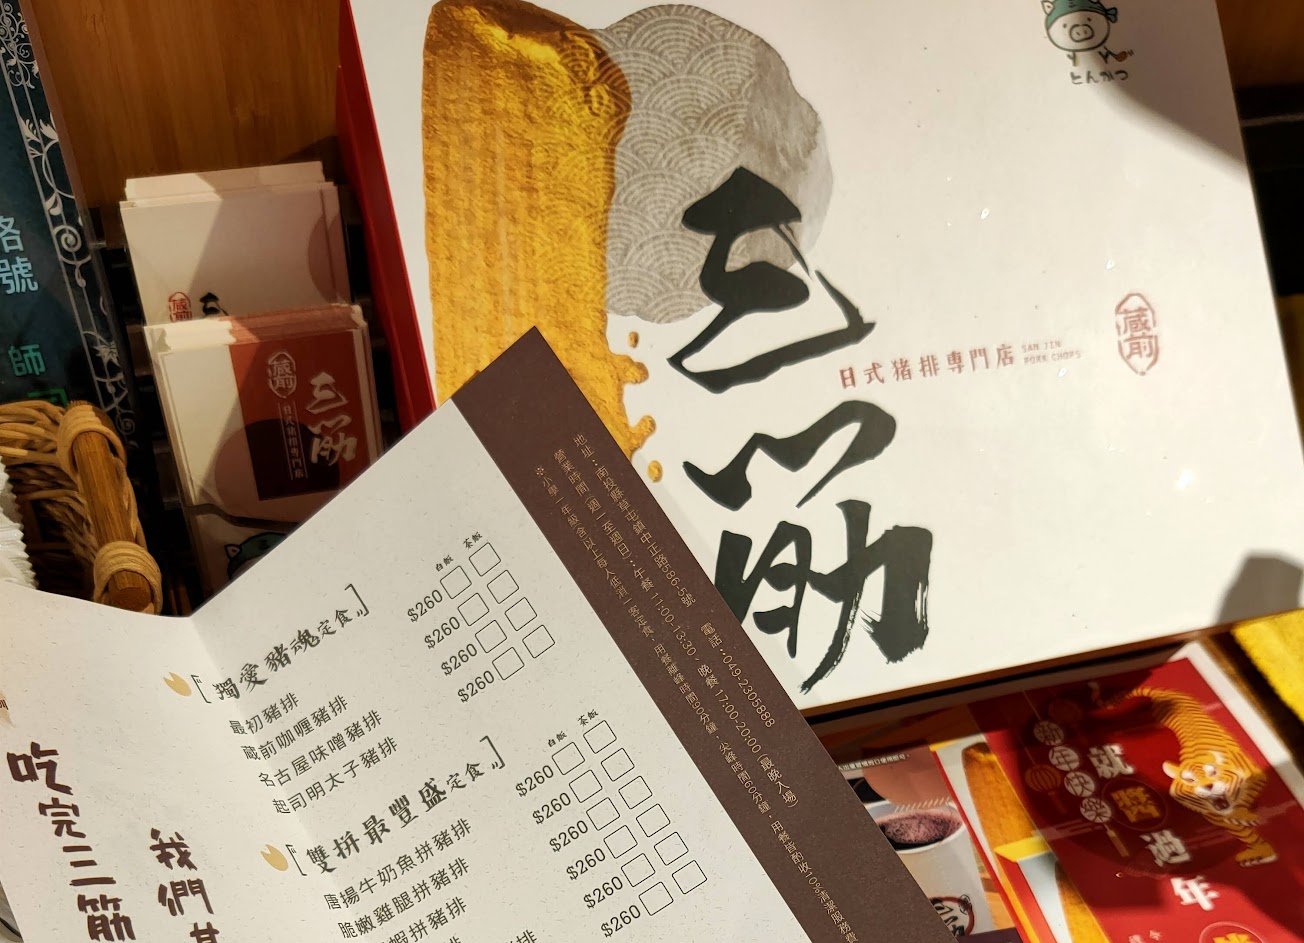 とんかつ
三筋
日式猪排専門店
SAN JIN
PORK CHOPS
蔵前
蔵前
三筋
日式猪排専門店
蔵前
號
師
地址：南投縣草屯鎮中正路586-5號
電話：049-2305888
營業時間(週一至週日)：午餐 11:00-13:30、晚餐 17:00-20:00(最晚入場)
※小學一年級含以上每人低消一客定食，用餐離峰時間90分鐘，尖峰時間60分鐘，用餐皆酌收10%清潔服務費
獨愛豬魂定食
白飯 茶飯
最初豬排 $260
藏前咖喱豬排 $260
名古屋味噌豬排 $260
起司明太子豬排 $260
雙拼最豐盛定食
白飯 茶飯
唐揚牛奶魚拼豬排 $260
脆嫩雞腿拼豬排 $260
蝦拼豬排 $260
$260
$260
吃完三筋
我們
新年快樂
就
發
過
年